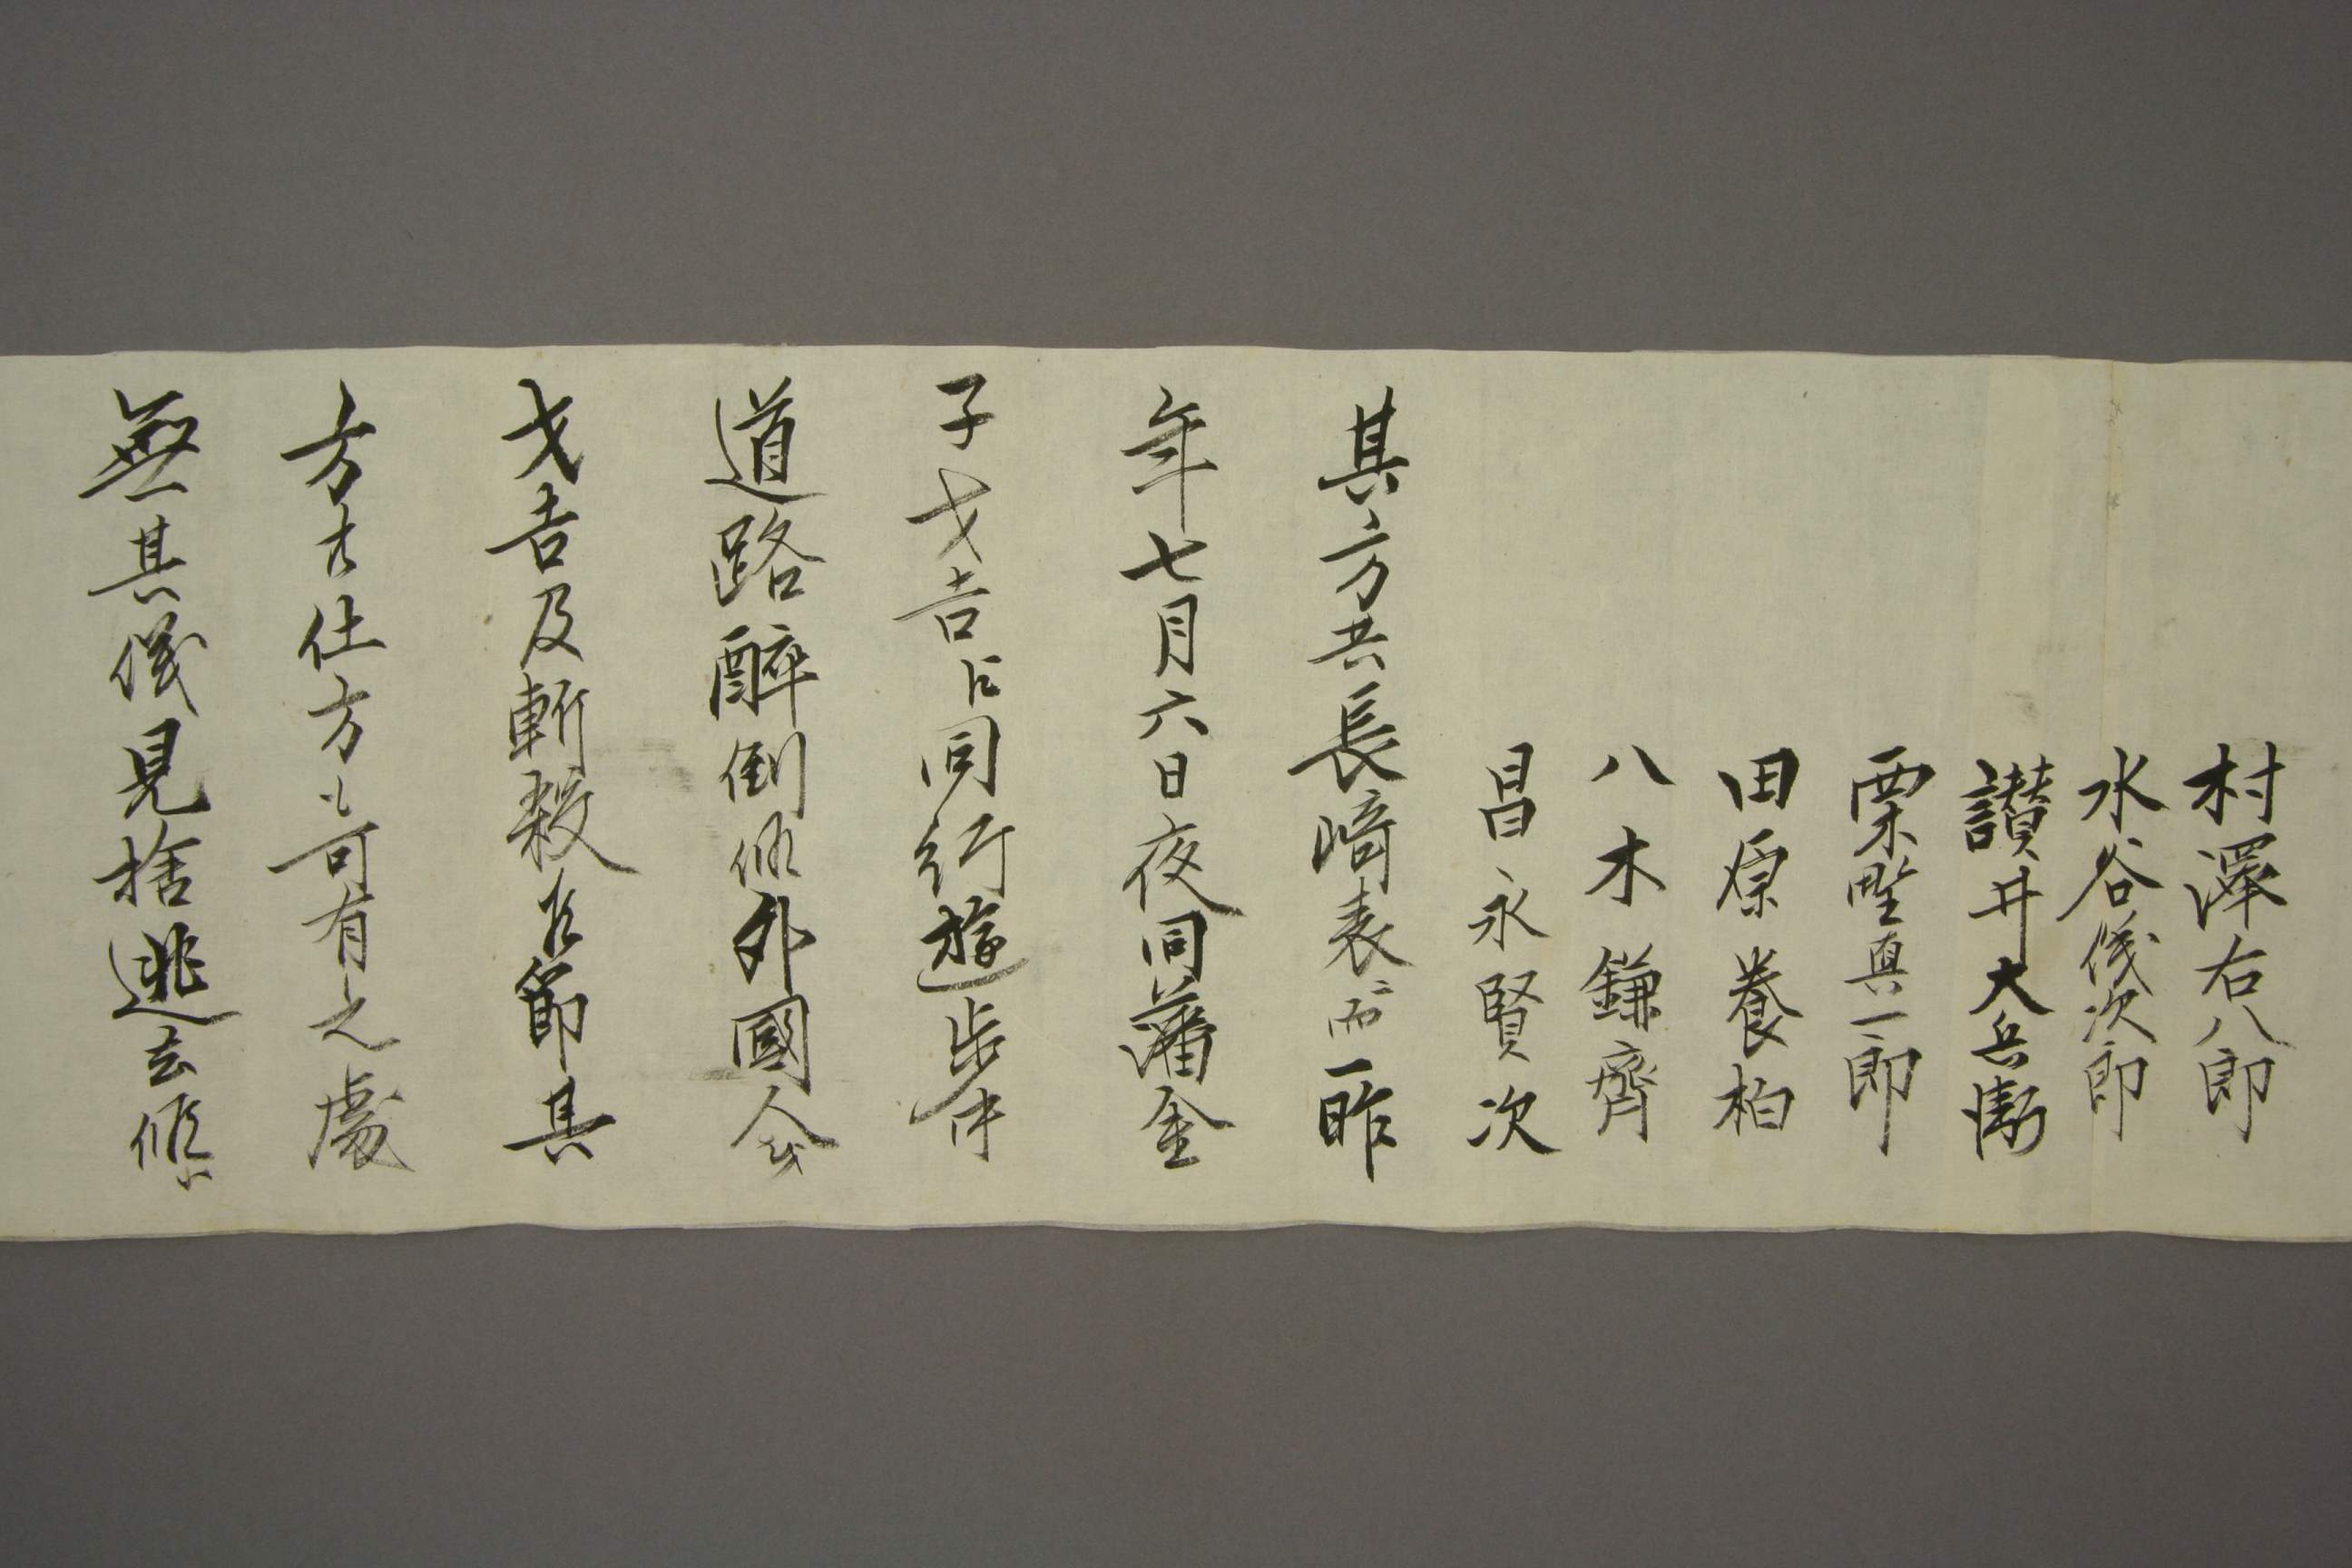 村澤右八郎
水谷儀次郎
讃井大兵衛
栗野真一郎
田原養柏
八木鎌齊
昌永賢次
其方共長崎表ニ而一昨
年七月六日夜同藩金
子才吉ニ同行遊歩中
道路醉倒候外國人
才吉及斬殺候節其
方共仕方も可有之處
無其儀見捨逃去候